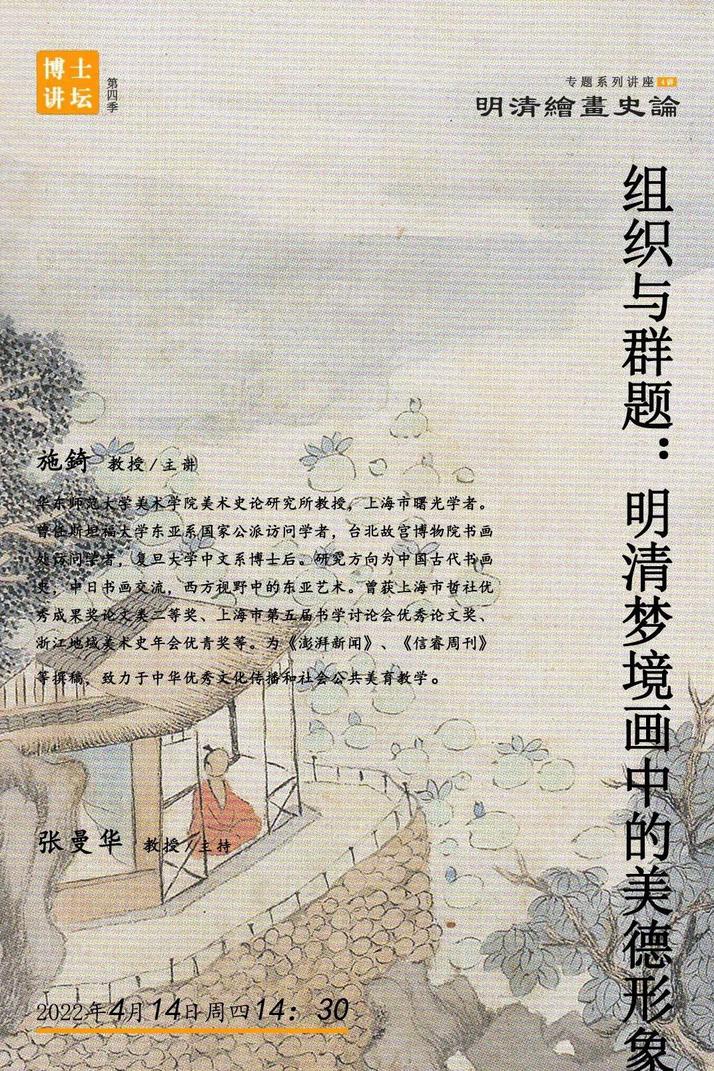 博士
讲坛
第四季
专题系列讲座 4讲
明清繪畫史論
组织与群题：明清梦境画中的美德形象
施錡 教授/主讲
华东师范大学美术学院美术史论研究所教授，上海市曙光学者。
曾任斯坦福大学东亚系国家公派访问学者，台北故宫博物院书画
处访问学者，复旦大学中文系博士后。研究方向为中国古代书画
史，中日书画交流，西方视野中的东亚艺术。曾获上海市哲社优
秀成果奖论文类二等奖、上海市第五届书学讨论会优秀论文奖、
浙江地域美术史年会优青奖等。为《澎湃新闻》、《信睿周刊》
等撰稿，致力于中华优秀文化传播和社会公共美育教学。
张曼华 教授/主持
2022年4月14日周四14：30